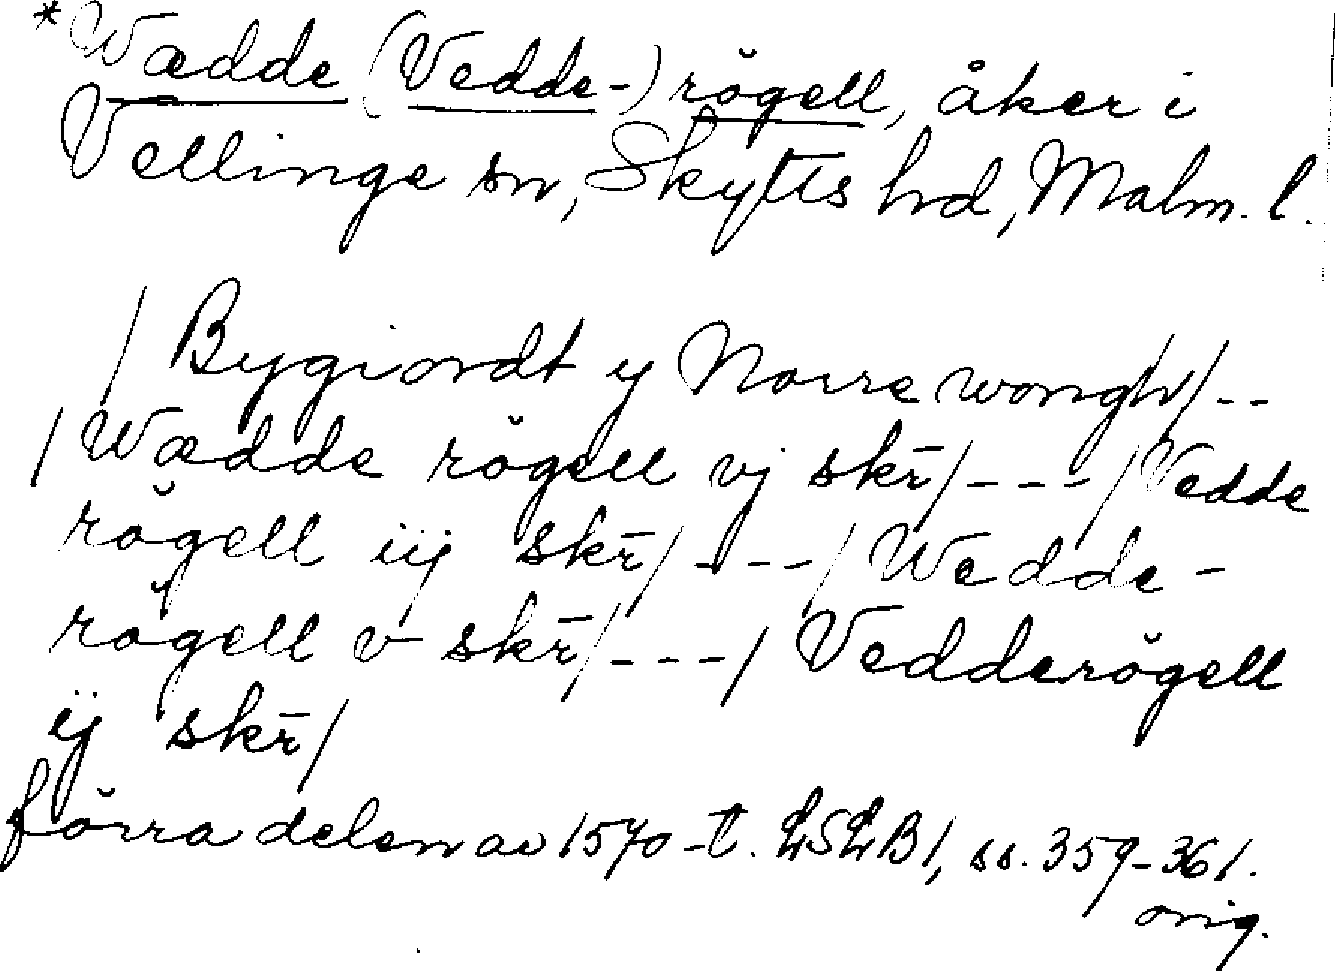 *Wædde (Vedde-) rögell, åker i
Vellinge sn, Skytts hd, Malm. l.
/ Bygiordt y Norre wongh/--
/Wædde rögell vj skr̄/---/Vedde
rögell iij skr̄/---/Wedde-
rögell v skr̄/---/Vedderögell
ij skr̄/
förra delen av 1570-t. LSLB1, ss. 359-361.
orig.